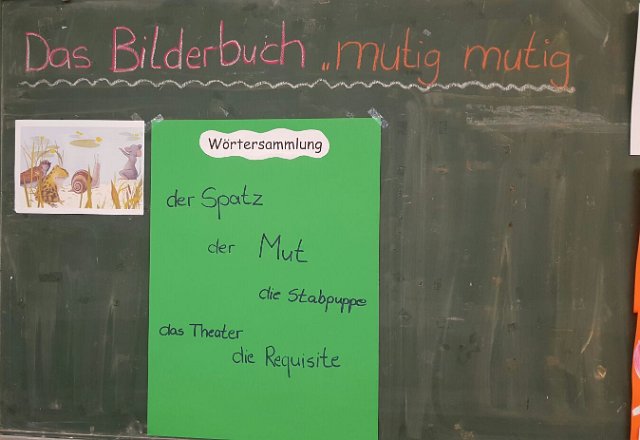 Das Bilderbuch „mutig mutig
Wörtersammlung
der Spatz
der Mut
die Stabpuppe
das Theater
die Requisite